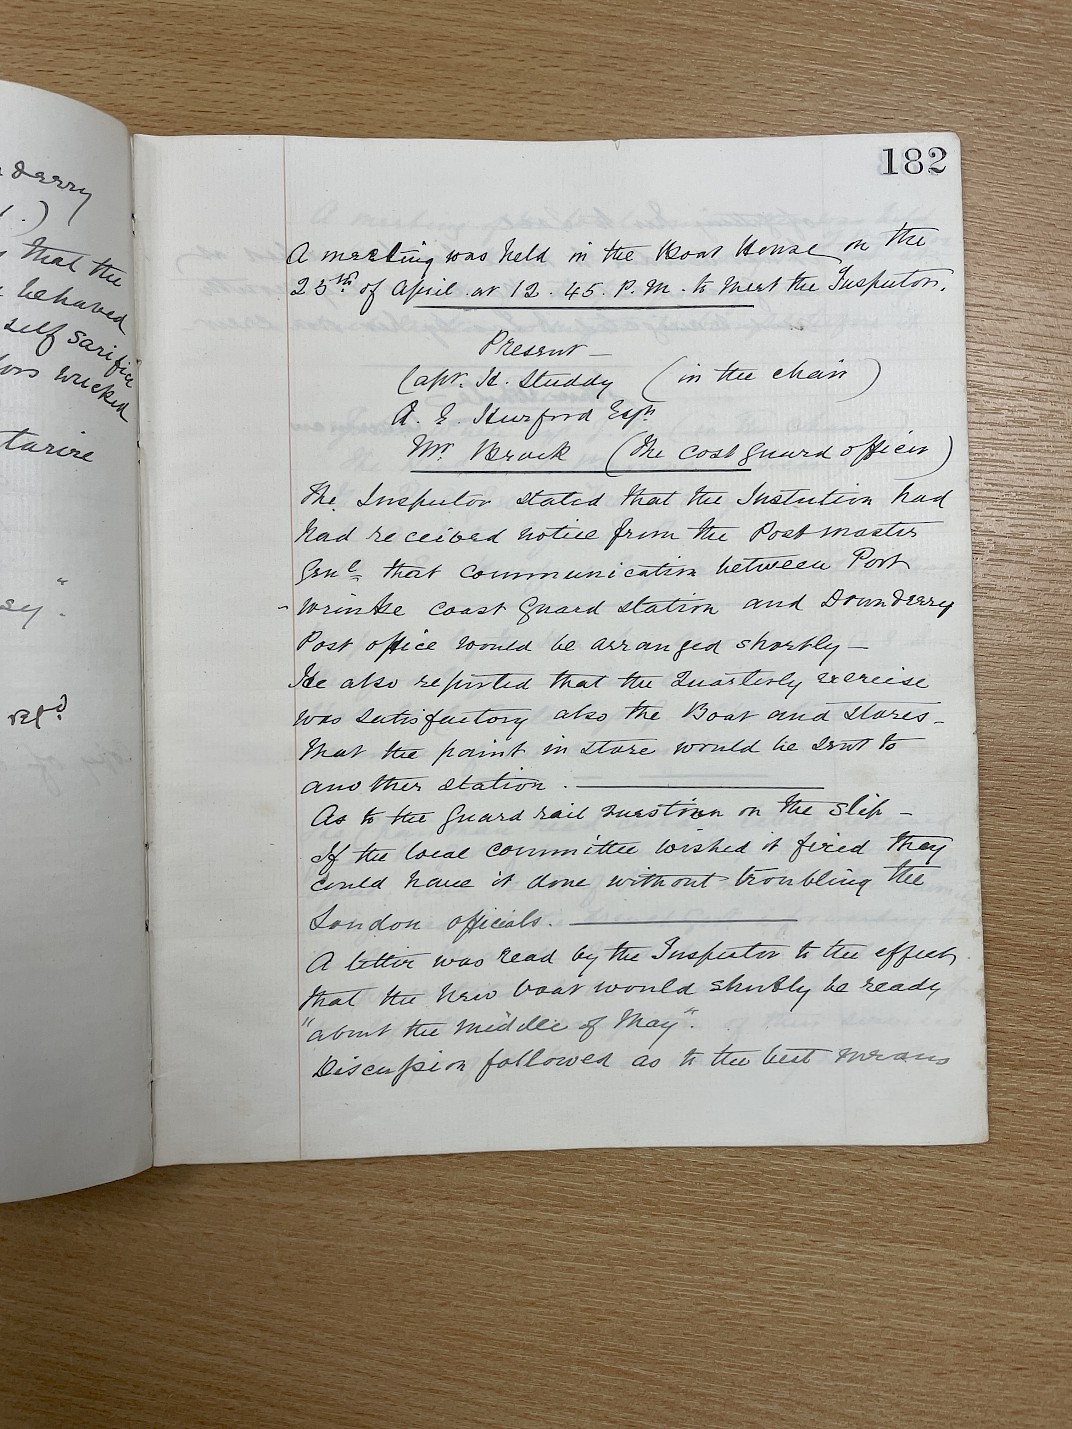 derry
.)
that the
behaved
self sarifice
wicked
tarire
"
sey.
repd
182
A meeting was held in the Boat House on the
25th of April at 12.45. P.M. to meet the Inspector.
Present —
Capt. H. Studdy (in the chair)
A. E. Hurford Esqr
Mr. Brock (The cost guard officer)
The Inspector stated that the Instution had
had received notice from the Post master
Genl that communication between Port
- wrinkle coast Guard station and Downderry
Post office would be arranged shortly —
He also reported that the Quarterly exercise
was satisfactory also the Boat and Stores -
That the paint in store would be sent to
another station.
As to the guard rail question on the Slip —
If the local committee wished it fixed they
could have it done without troubling the
London officials.
A letter was read by the Inspector to the effect
that the New boat would shortly be ready
"about the middle of May".
Discussion followed as to the best means